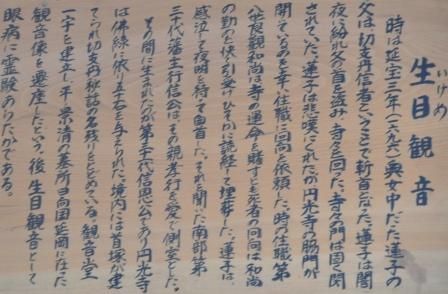 いけめ
生目観音
時は延宝三年(一六七六)奥女中だった蓮子の
父は切支丹信者ということで斬首となった。蓮子は闇
夜に紛れ父の首を盗み、寺々を回った。寺々の門は固く閉
されていた。蓮子は悲嘆にくれたが円光寺の脇門が
開いているのを幸、住職に回向を依頼した。時の住職第
八世良観和尚は寺の運命を賭すとも死者の回向は和尚
の勤めと快く引受け、ひそかに読経して埋葬した。蓮子は
感泣して夜明を待って自首した。それを聞いた南部第
三十代藩主行信公は、その親孝行を愛で側室とした。
その間に生まれたのが第三十二代信恩公であり円光寺
は佛縁に依り五石を与えられた。境内には首塚が建
てられ切支丹秘話の名残りをとどめている。観音堂
一宇を建立し、平景清の墓所日向国延岡に在った
観音像を遷座したという。後生目観音として
眼病に霊験あらたかである。